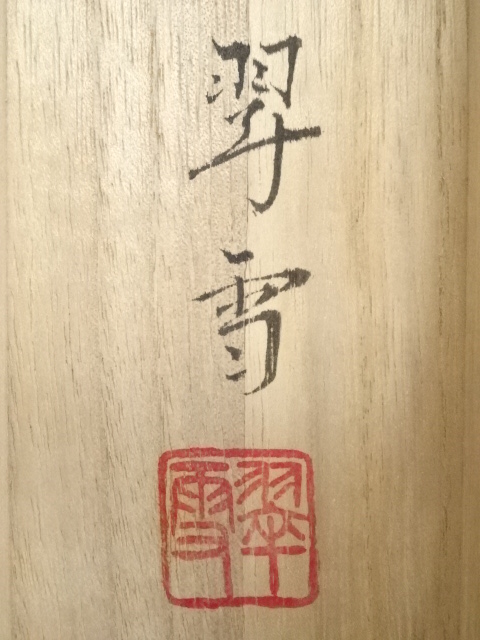 翠雪
翠雪